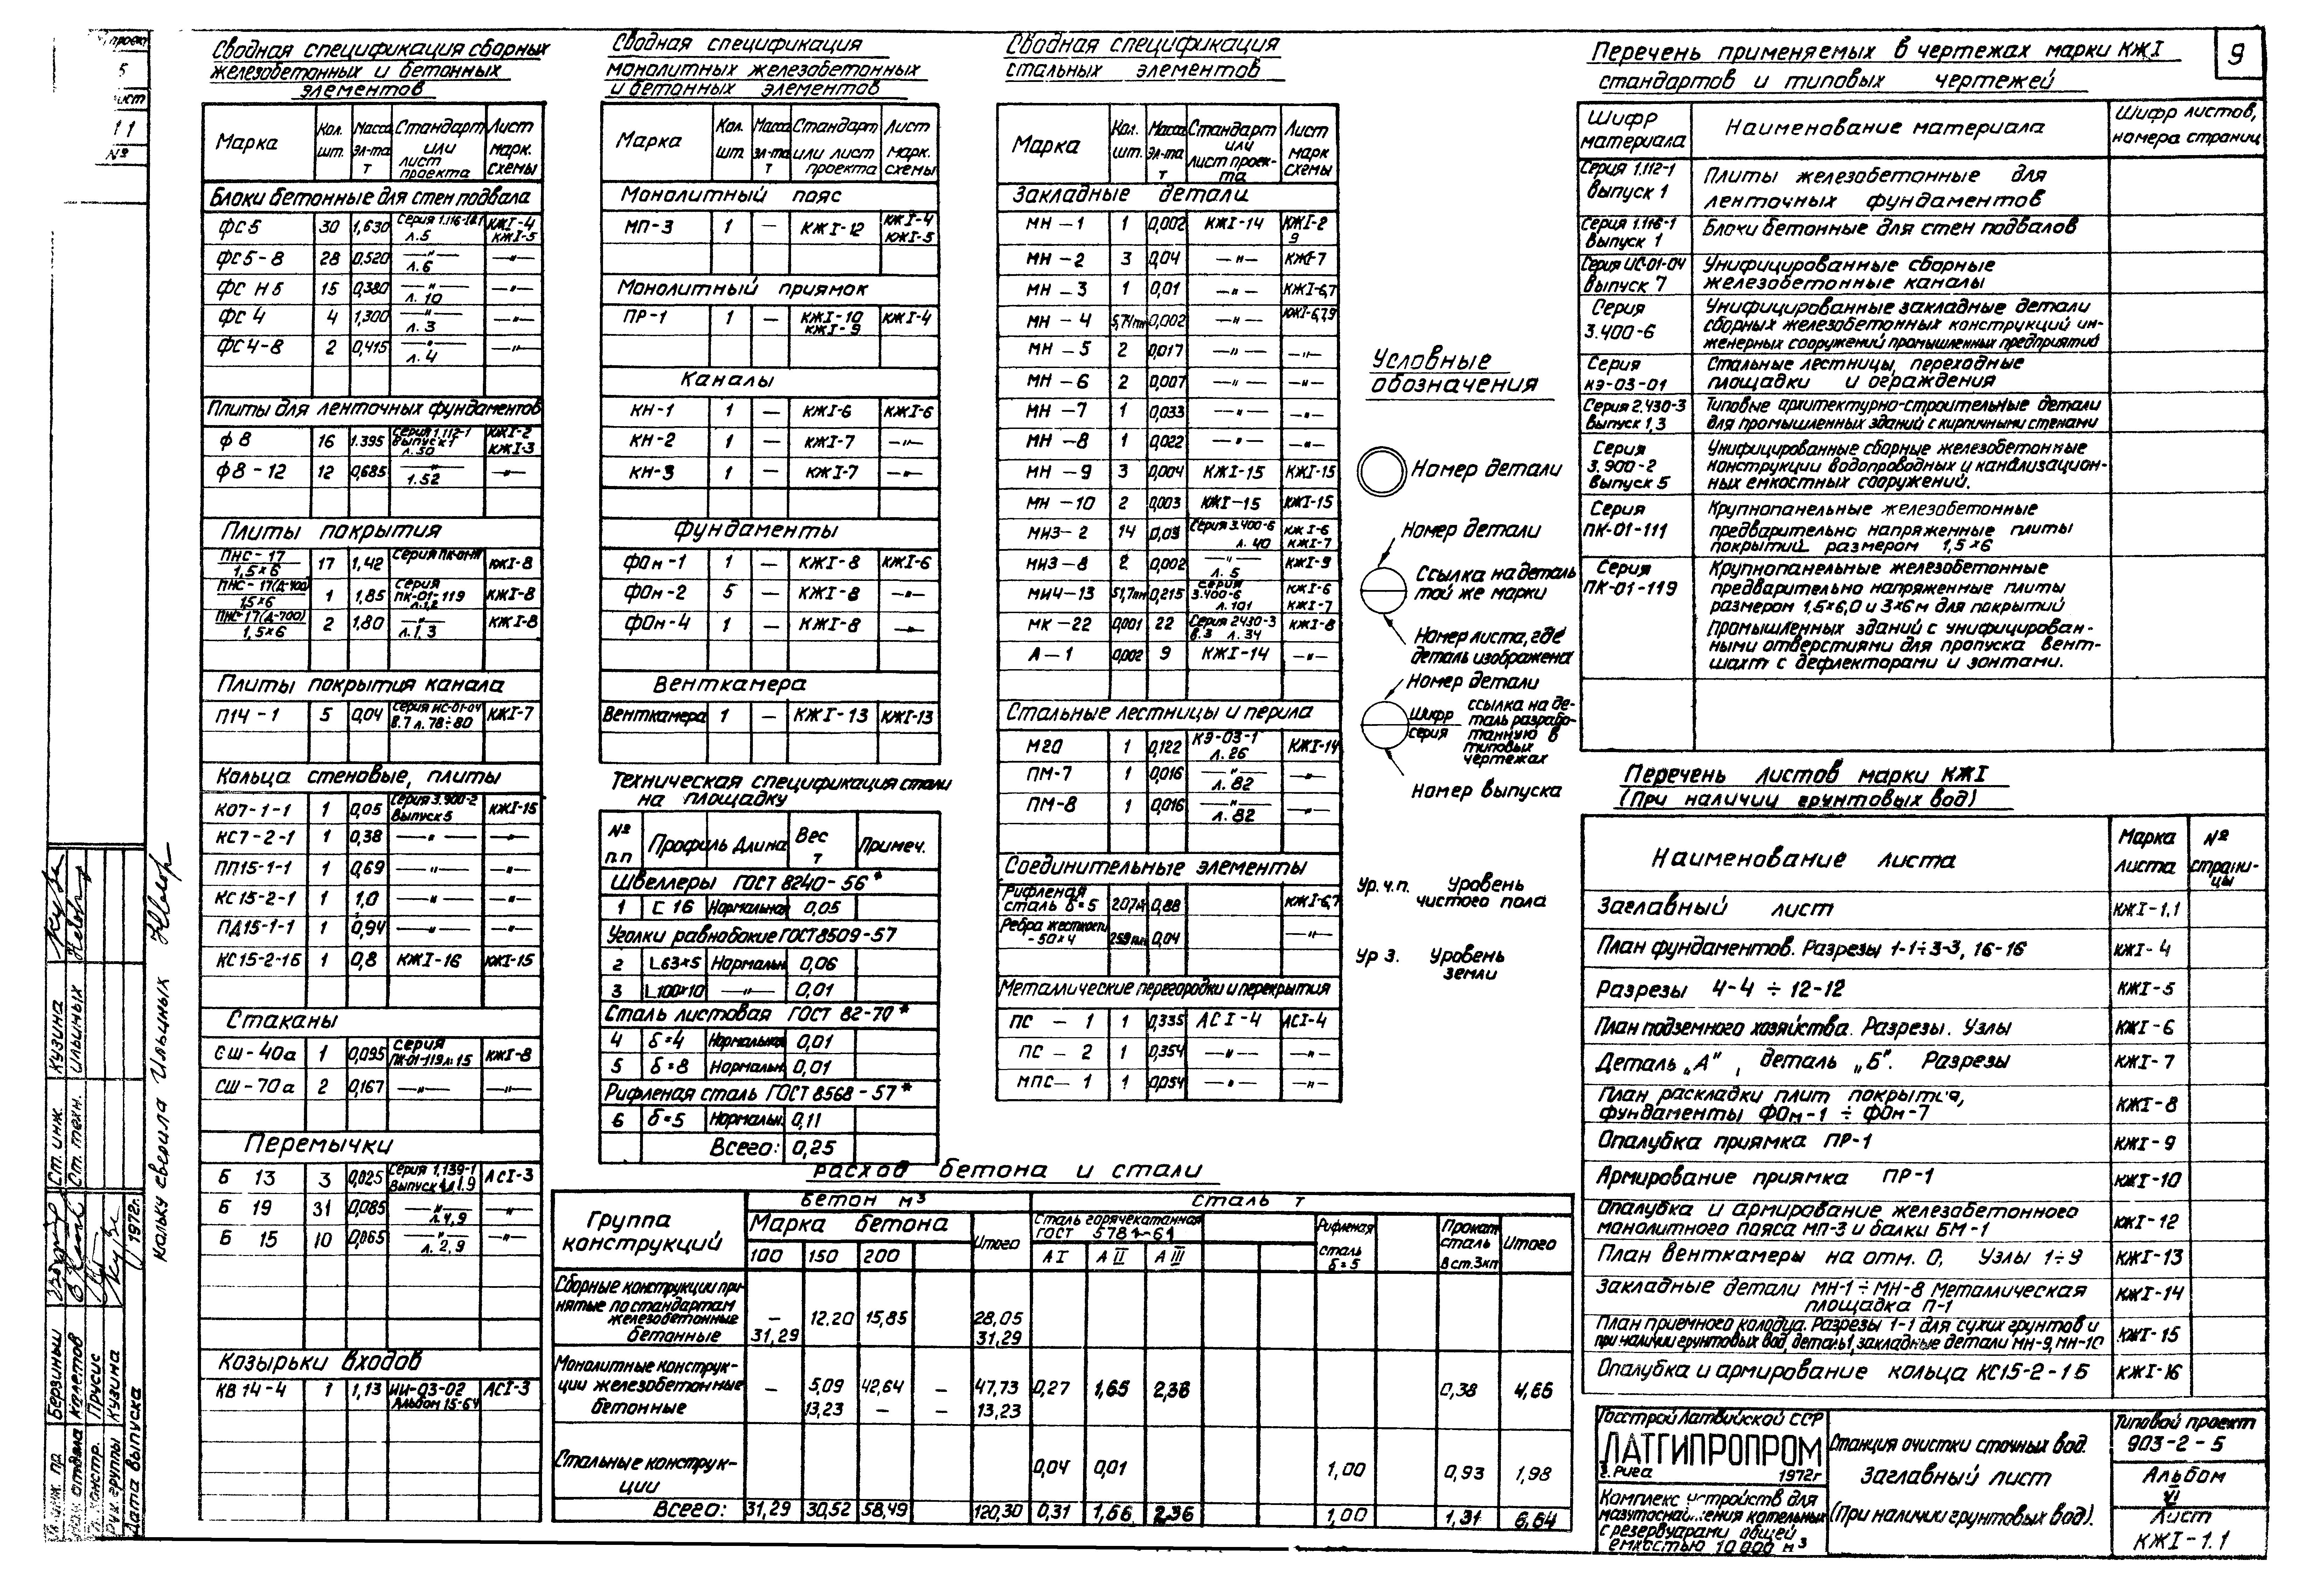 проект
5
лист
11
№
9
Сводная спецификация сборных
железобетонных и бетонных
элементов
Марка Кол. шт. Масса эл-та т Стандарт или лист проекта Лист марк. схемы
Блоки бетонные для стен подвала
ФС5 30 1,630 Серия 1.116-1в.1 л.5 КЖI-4 КЖI-5
ФС5-8 28 0.520 —"— л.6 —"—
ФС Н5 15 0,380 —"— л.10 —"—
ФС4 4 1,300 —"— л.3 —"—
ФС4-8 2 0,415 —"— л.4 —"—
Плиты для ленточных фундаментов
Ф8 16 1.395 Серия 1.112-1 выпуск 1 л.50 КЖI-2 КЖI-3
Ф8-12 12 0,685 —"— 1.52 —"—
Плиты покрытия
ПНС-17 1,5×6 17 1,42 Серия ПК-01-111 КЖI-8
ПНС-17(Д-400) 1,5×6 1 1,85 Серия ПК-01-119 л.1,2 КЖI-8
ПНС-17(Д-700) 1,5×6 2 1,80 —"— л.1,3 КЖI-8
Плиты покрытия канала
П14-1 5 0,04 Серия ИС-01-04 в.7 л.78÷80 КЖI-7
Кольца стеновые, плиты
КО7-1-1 1 0,05 Серия 3.900-2 Выпуск 5 КЖI-15
КС7-2-1 1 0,38 —"— —"—
ПП15-1-1 1 0,69 —"— —"—
КС15-2-1 1 1,0 —"— —"—
ПД15-1-1 1 0,94 —"— —"—
КС15-2-1Б 1 0,8 КЖI-16 КЖI-15
Стаканы
СШ-40а 1 0,095 Серия ПК-01-119л.15 КЖI-8
СШ-70а 2 0,167 —"— —"—
Перемычки
Б 13 3 0,025 Серия 1,139-1 Выпуск 1 л.1.9 АСI-3
Б 19 31 0,085 —"— л.4,9 —"—
Б 15 10 0,065 —"— л.2,9 —"—
Козырьки входов
КВ 14-4 1 1,13 ИИ-03-02 Альбом 15-64 АСI-3
Сводная спецификация
монолитных железобетонных
и бетонных элементов
Марка Кол. шт. Масса эл-та т Стандарт или лист проекта Лист марк. схемы
Монолитный пояс
МП-3 1 — КЖI-12 КЖI-4 КЖI-5
Монолитный приямок
ПР-1 1 — КЖI-10 КЖI-9 КЖI-4
Каналы
КН-1 1 — КЖI-6 КЖI-6
КН-2 1 — КЖI-7 —"—
КН-3 1 — КЖI-7 —"—
Фундаменты
ФОм-1 1 — КЖI-8 КЖI-6
ФОм-2 5 — КЖI-8 —"—
ФОм-4 1 — КЖI-8 —"—
Венткамера
Венткамера 1 — КЖI-13 КЖI-13
Техническая спецификация стали
на площадку
№ п.п Профиль Длина Вес т Примеч.
Швеллеры ГОСТ 8240-56*
1 С 16 Нормальная 0,05
Уголки равнобокие ГОСТ 8509-57
2 L63×5 Нормальн 0,06
3 L100×10 —"— 0,01
Сталь листовая ГОСТ 82-70*
4 δ=4 Нормальная 0,01
5 δ=8 Нормальн. 0,01
Рифленая сталь ГОСТ 8568-57*
6 δ=5 Нормальн. 0,11
Всего: 0,25
Сводная спецификация
стальных элементов
Марка Кол. шт. Масса эл-та т Стандарт или лист проек-та Лист марк схемы
Закладные детали
МН-1 1 0,002 КЖI-14 КЖI-2 9
МН-2 3 0,04 —"— КЖI-7
МН-3 1 0,01 —"— КЖI-6,7
МН-4 5,74пм 0,002 —"— КЖI-6,7,9
МН-5 2 0,017 —"— —"—
МН-6 2 0,007 —"— —"—
МН-7 1 0,033 —"— —"—
МН-8 1 0,022 —"— —"—
МН-9 3 0,004 КЖI-15 КЖI-15
МН-10 2 0,003 КЖI-15 КЖI-15
МИЗ-2 14 0,03 Серия 3.400-6 л.40 КЖI-6 КЖI-7
МИЗ-8 2 0,002 —"— л.5 КЖI-9
МИЧ-13 51,7пм 0,215 Серия 3.400-6 л.101 КЖI-6 КЖI-7
МК-22 0,001 22 Серия 2430-3 в.3 л.34 КЖI-8
А-1 0,002 9 КЖI-14 —"—
Стальные лестницы и перила
М20 1 0,122 КЭ-03-1 л.26 КЖI-14
ПМ-7 1 0,016 —"— л.82 —"—
ПМ-8 1 0,016 —"— л.82 —"—
Соединительные элементы
Рифленая сталь δ=5 20,7м 0,88 КЖI-6,7
Ребра жесткости -50×4 0,04 —"—
Металлические перегородки и перекрытия
ПС-1 1 0,335 АСI-4 АСI-4
ПС-2 1 0,354 —"— —"—
МПС-1 1 0,054 —"— —"—
Условные
обозначения
Номер детали
Номер детали
Ссылка на деталь
той же марки
Номер листа, где
деталь изображена
Номер детали
Шифр
серия
ссылка на де-
таль разрабо-
танную в
типовых
чертежах
Номер выпуска
Ур. ч.п. Уровень
чистого пола
Ур з. Уровень
земли
Расход бетона и стали
Группа конструкций Бетон м³ Сталь т
Марка бетона Итого Сталь горячекатанная ГОСТ 5781-61 Рифленая сталь δ=5 Прокат сталь Вст.3кп Итого
100 150 200 АI АII АIII
Сборные конструкции при-
нятые по стандартам
железобетонные — 12.20 15,85 28,05
бетонные 31,29 31,29
Монолитные конструк-
ции железобетонные — 5,09 42,64 — 47,73 0,27 1,65 2,36 0,38 4,66
бетонные 13,23 — — 13,23
Стальные конструк-
ции 0,04 0,01 1,00 0,93 1,98
Всего: 31,29 30,52 58,49 120,30 0,31 1,66 2,36 1,00 1,31 6,64
Перечень применяемых в чертежах марки КЖI
стандартов и типовых чертежей
Шифр материала Наименование материала Шифр листов, номера страниц
Серия 1.112-1 выпуск 1 Плиты железобетонные для
ленточных фундаментов
Серия 1.116-1 Выпуск 1 Блоки бетонные для стен подвалов
Серия ИС-01-04 Выпуск 7 Унифицированные сборные
железобетонные каналы
Серия 3.400-6 Унифицированные закладные детали
сборных железобетонных конструкций ин-
женерных сооружений промышленных предприятий
Серия КЭ-03-01 Стальные лестницы, переходные
площадки и ограждения
Серия 2.430-3 Выпуск 1,3 Типовые архитектурно-строительные детали
для промышленных зданий с кирпичными стенами
Серия 3.900-2 Выпуск 5 Унифицированные сборные железобетонные
конструкции водопроводных и канализацион-
ных емкостных сооружений.
Серия ПК-01-111 Крупнопанельные железобетонные
предварительно напряженные плиты
покрытий размером 1,5×6
Серия ПК-01-119 Крупнопанельные железобетонные
предварительно напряженные плиты
размером 1,5×6,0 и 3×6м для покрытий
промышленных зданий с унифицирован-
ными отверстиями для пропуска вент-
шахт с дефлекторами и зонтами.
Перечень листов марки КЖI
(При наличии грунтовых вод)
Наименование листа Марка листа № страни-цы
Заглавный лист КЖI-1.1
План фундаментов. Разрезы 1-1÷3-3, 16-16 КЖI-4
Разрезы 4-4÷12-12 КЖI-5
План подземного хозяйства. Разрезы. Узлы КЖI-6
Деталь „А", деталь „Б". Разрезы КЖI-7
План раскладки плит покрытия,
фундаменты ФОм-1÷ФОм-7 КЖI-8
Опалубка приямка ПР-1 КЖI-9
Армирование приямка ПР-1 КЖI-10
Опалубка и армирование железобетонного
монолитного пояса МП-3 и балки БМ-1 КЖI-12
План венткамеры на отм. 0, Узлы 1÷9 КЖI-13
Закладные детали МН-1÷МН-8 Металлическая
площадка П-1 КЖI-14
План приемного колодца. Разрезы 1-1 для сухих грунтов и
при наличии грунтовых вод, деталь 1, закладные детали МН-9, МН-10 КЖI-15
Опалубка и армирование кольца КС15-2-1Б КЖI-16
Госстрой Латвийской ССР
ЛАТГИПРОПРОМ
г. Рига 1972г
Комплекс устройств для
мазутоснабжения котельных
с резервуарами общей
емкостью 10000 м³
Станция очистки сточных вод.
Заглавный лист
(При наличии грунтовых вод).
Типовой проект
903-2-5
Альбом
VI
Лист
КЖI-1.1
Кальку сверила Ильиных
Ст. инж. Кузина
Ст. техн. Ильиных
Гл. инж. пр Берзиньш
Нач. отдела Колетов
Гл. констр. Прусис
Рук. группы Кузина
Дата выпуска 1972г.